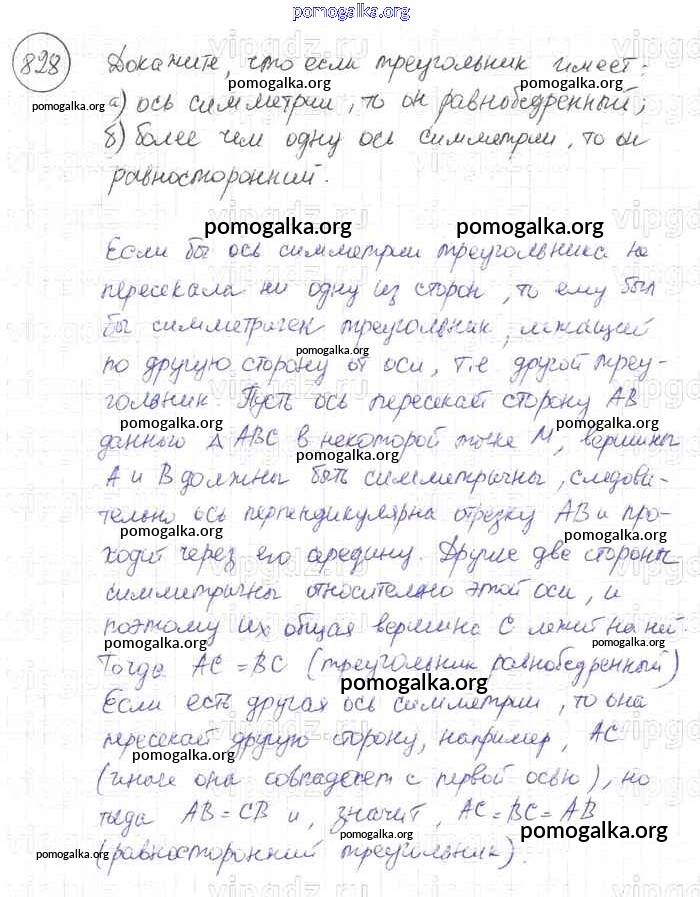 pomogalka.org
828 Докажите, что если треугольник имеет:
pomogalka.org pomogalka.org pomogalka.org
а) ось симметрии, то он равнобедренный;
б) более чем одну ось симметрии, то он
равносторонний.
pomogalka.org pomogalka.org
Если бы ось симметрии треугольника не
пересекала ни одну из сторон, то ему был
бы симметричен треугольник, лежащий
pomogalka.org
по другую сторону от оси, т.е другой треу-
гольник. Пусть ось пересекает сторону AB
pomogalka.org pomogalka.org
данного Δ ABC в некоторой точке M, вершины
pomogalka.org
A и B должны быть симметричны, следова-
тельно ось перпендикулярна отрезку AB и про-
pomogalka.org pomogalka.org
ходит через его середину. Другие две стороны
симметричны относительно этой оси, и
поэтому их общая вершина C лежит на ней.
pomogalka.org pomogalka.org
Тогда AC = BC (треугольник равнобедренный)
pomogalka.org
Если есть другая ось симметрии, то она
пересекает другую сторону, например, AC
pomogalka.org
(иначе она совпадает с первой осью), но
тогда AB = CB и, значит, AC = BC = AB
pomogalka.org pomogalka.org
(равносторонний треугольник).
pomogalka.org pomogalka.org